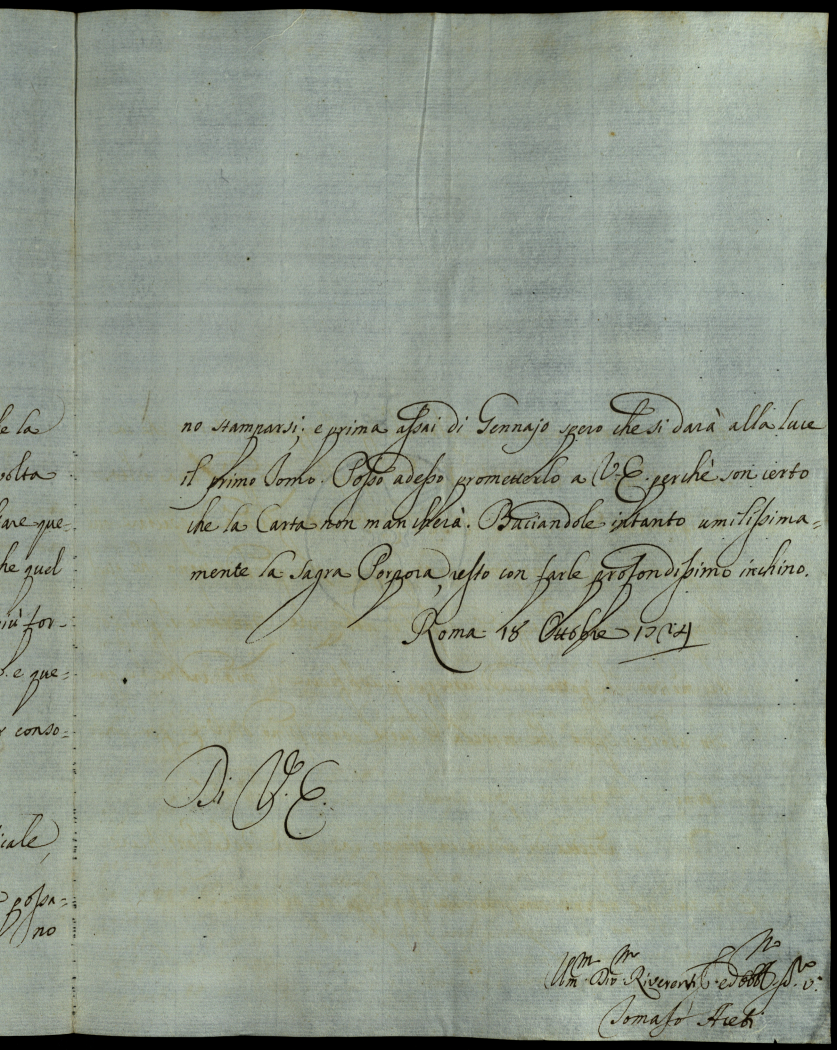 le la
volta
fare que-
he quel
più for-
e que=
r conso=
icale,
possa=
no
no stamparsi; e prima assai di Gennajo spero che si darà alla luce
il primo Tomo. Posso adesso prometterlo a V. E. perchè son certo
che la Carta non mancherà. Baciandole intanto umilissima=
mente la Sagra Porpora, resto con farle profondissimo inchino.
Roma 18 Ottobre 1724
Di V. E.
Um.mo Div.mo Riverent
Tomaso